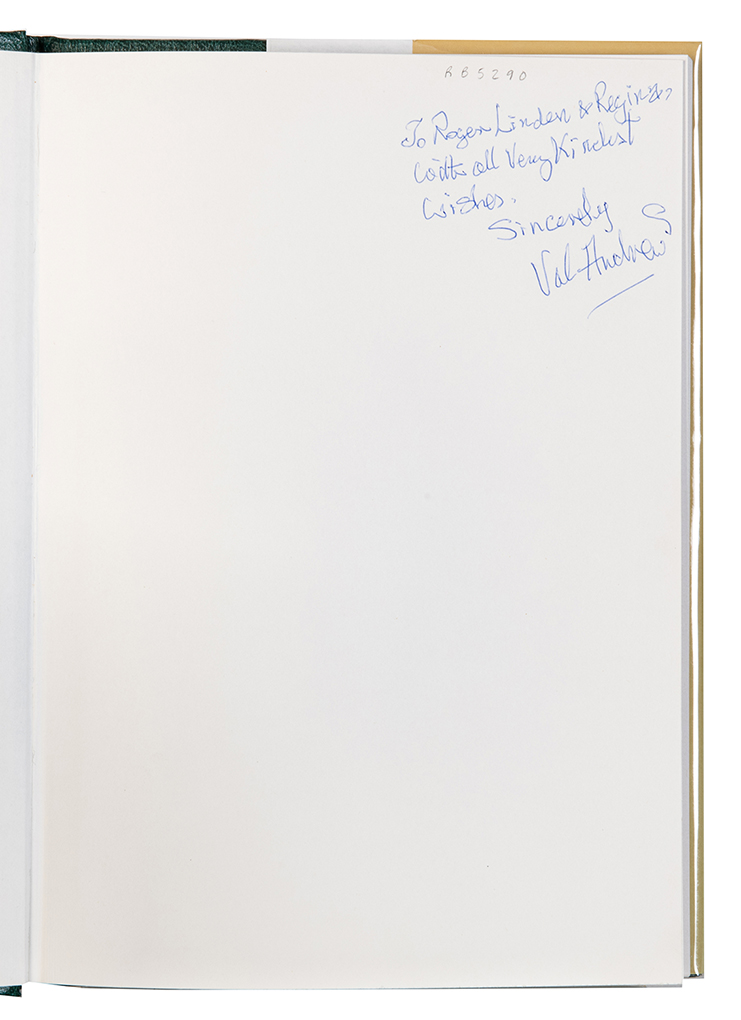 RB5290
To Roger Linden & Regina,
With all Very Kindest
Wishes.
Sincerely
Val Andrews